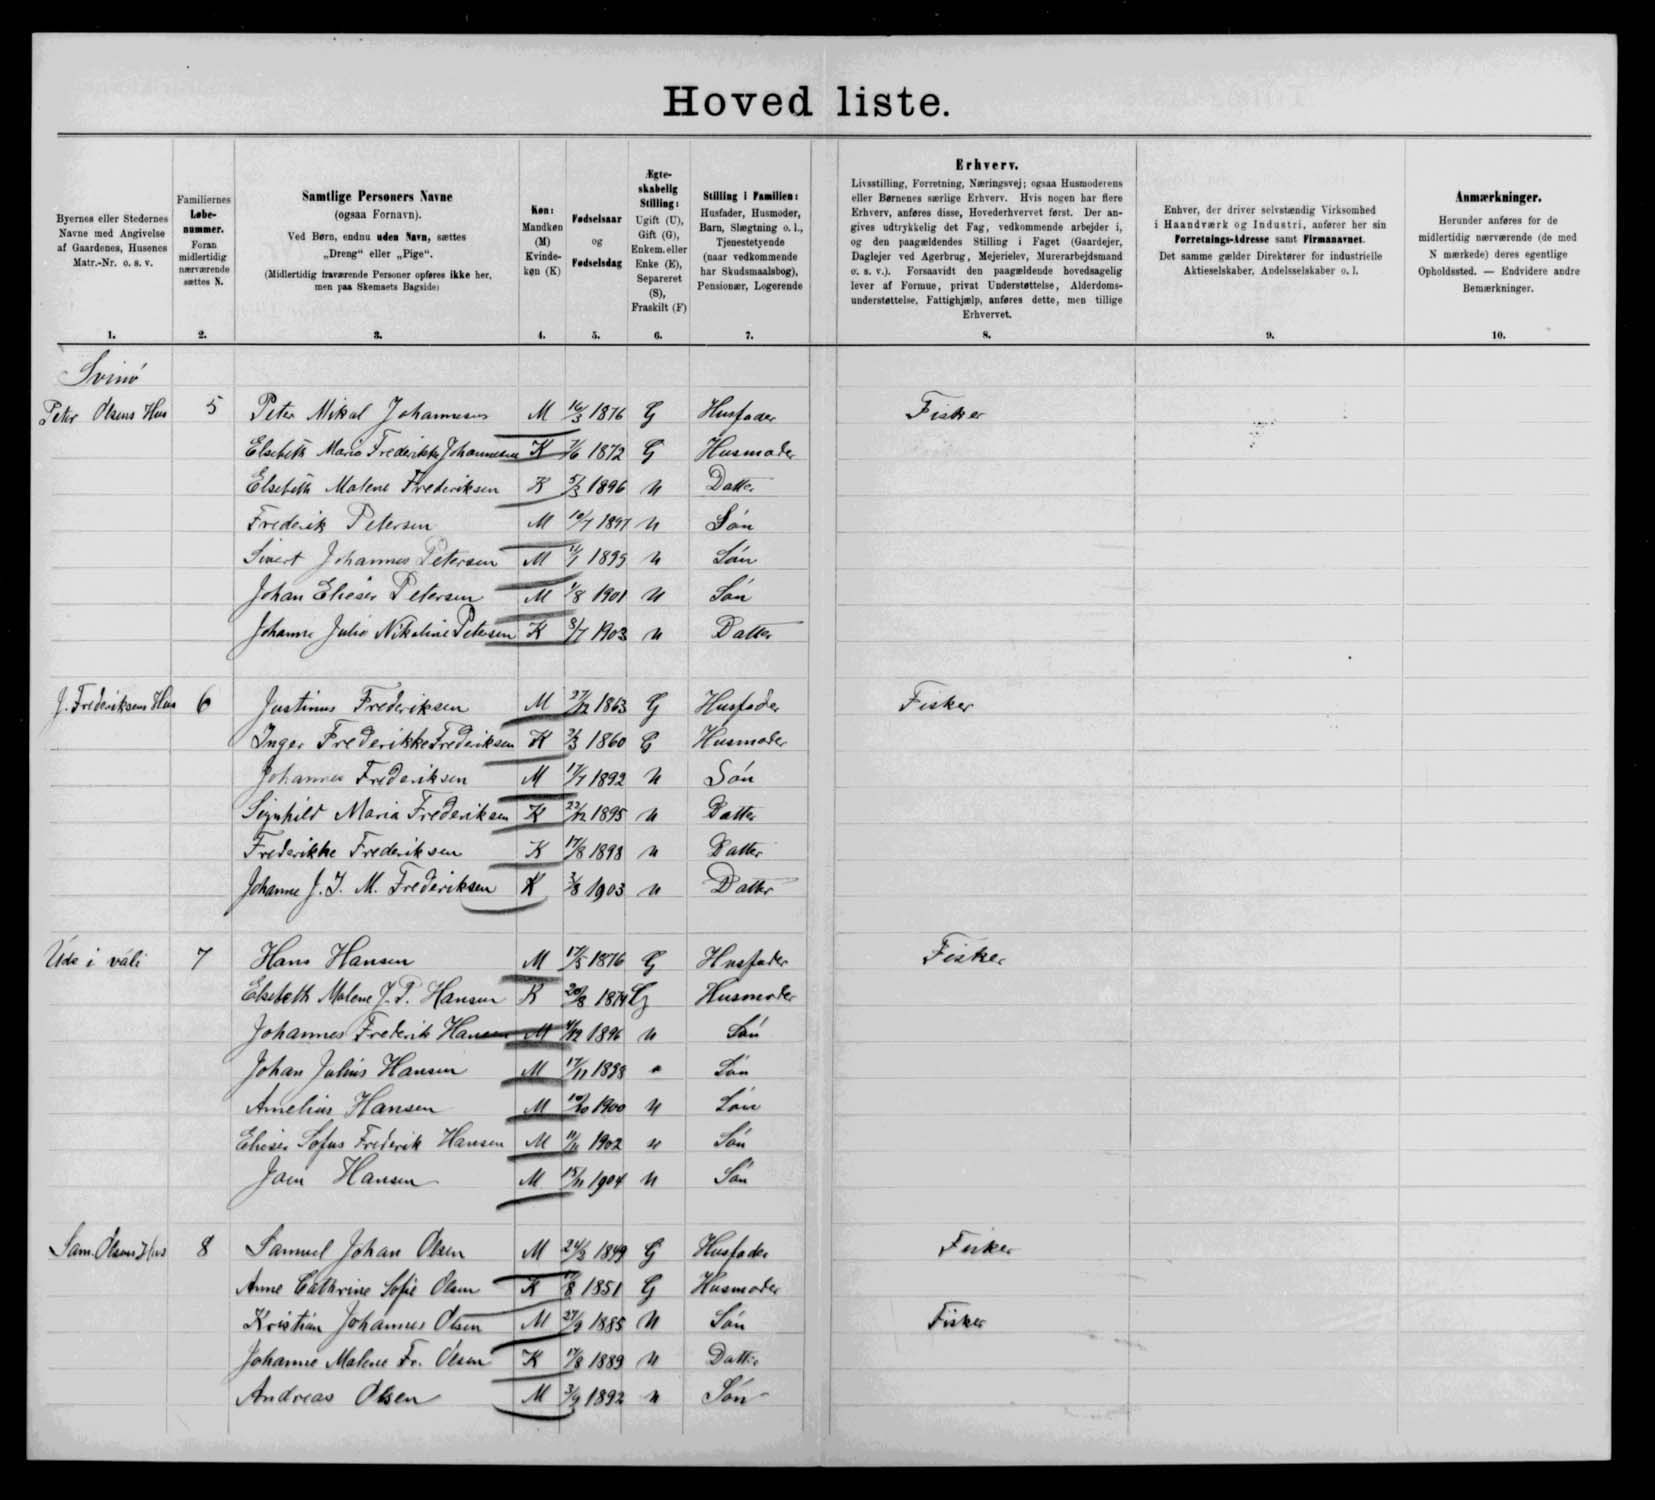 Hoved liste.
Byernes eller Stedernes Navne med Angivelse af Gaardenes, Husenes Matr.-Nr. o. s. v.
Familiernes Løbenummer. Foran midlertidig nærværende sættes N.
Samtlige Personers Navne (ogsaa Fornavn). Ved Børn, endnu uden Navn, sættes „Dreng“ eller „Pige“. (Midlertidig fraværende Personer opføres ikke her, men paa Skemaets Bagside)
Køn: Mandkøn (M) Kvindekøn (K)
Fødselsaar og Fødselsdag
Ægteskabelig Stilling: Ugift (U), Gift (G), Enkem. eller Enke (E), Separeret (S), Fraskilt (F)
Stilling i Familien: Husfader, Husmoder, Barn, Slægtning o. l., Tjenestetyende (naar vedkommende har Skudsmaalsbog), Pensionær, Logerende
Erhverv.
Livsstilling, Forretning, Næringsvej; ogsaa Husmoderens
eller Børnenes særlige Erhverv. Hvis nogen har flere
Erhverv, anføres disse, Hovederhvervet først. Der an-
gives udtrykkelig det Fag, vedkommende arbejder i,
og den paagældendes Stilling i Faget (Gaardejer,
Daglejer ved Agerbrug, Mejerielev, Murerarbejdsmand
o. s. v.). Forsaavidt den paagældende hovedsagelig
lever af Formue, privat Understøttelse, Alderdoms-
understøttelse, Fattighjælp, anføres dette, men tillige
Erhvervet.
Enhver, der driver selvstændig Virksomhed
i Haandværk og Industri, anfører her sin
Forretnings-Adresse samt Firmanavnet.
Det samme gælder Direktører for industrielle
Aktieselskaber, Andelsselskaber o. l.
Anmærkninger.
Herunder anføres for de
midlertidig nærværende (de med
N mærkede) deres egentlige
Opholdssted. — Endvidere andre
Bemærkninger.
1. 2. 3. 4. 5. 6. 7. 8. 9. 10.
Svinö
Peter Olsens Hus 5 Peter Mikal Johannesen M 16/3 1876 G Husfader Fisker
Elsebeth Maria Frederikke Johannesen K 7/6 1872 G Husmoder
Elsebeth Malene Frederiksen K 5/3 1896 U Datter
Frederik Petersen M 10/7 1897 U Sön
Sivert Johannes Petersen M 1899 U Sön
Johan Elieser Petersen M 1/8 1901 U Sön
Johanne Julie Nikoline Petersen K 8/7 1903 U Datter
J. Frederiksens Hus 6 Justinus Frederiksen M 27/12 1863 G Husfader Fisker
Inger Frederikke Frederiksen K 2/3 1860 G Husmoder
Johannes Frederiksen M 17/7 1892 U Sön
Signhild Maria Frederiksen K 22/12 1895 U Datter
Frederikke Frederiksen K 17/8 1898 U Datter
Johanne J. I. M. Frederiksen K 3/8 1903 U Datter
Ude i váli 7 Hans Hansen M 17/5 1876 G Husfader Fisker
Elsebeth Malene J. P. Hansen K 20/8 1874 G Husmoder
Johannes Frederik Hansen M 4/12 1896 U Sön
Johan Julius Hansen M 17/11 1898 " Sön
Amelius Hansen M 10/10 1900 U Sön
Elieser Sofus Frederik Hansen M 11/11 1902 U Sön
Joen Hansen M 15/11 1904 U Sön
Sam. Olsens Hus 8 Samuel Johan Olsen M 24/3 1849 G Husfader Fisker
Anne Cathrine Sofie Olsen K 1851 G Husmoder
Kristian Johannes Olsen M 27/9 1885 U Sön Fisker
Johanne Malene Fr. Olsen K 17/8 1889 U Datter
Andreas Olsen M 3/9 1892 U Sön